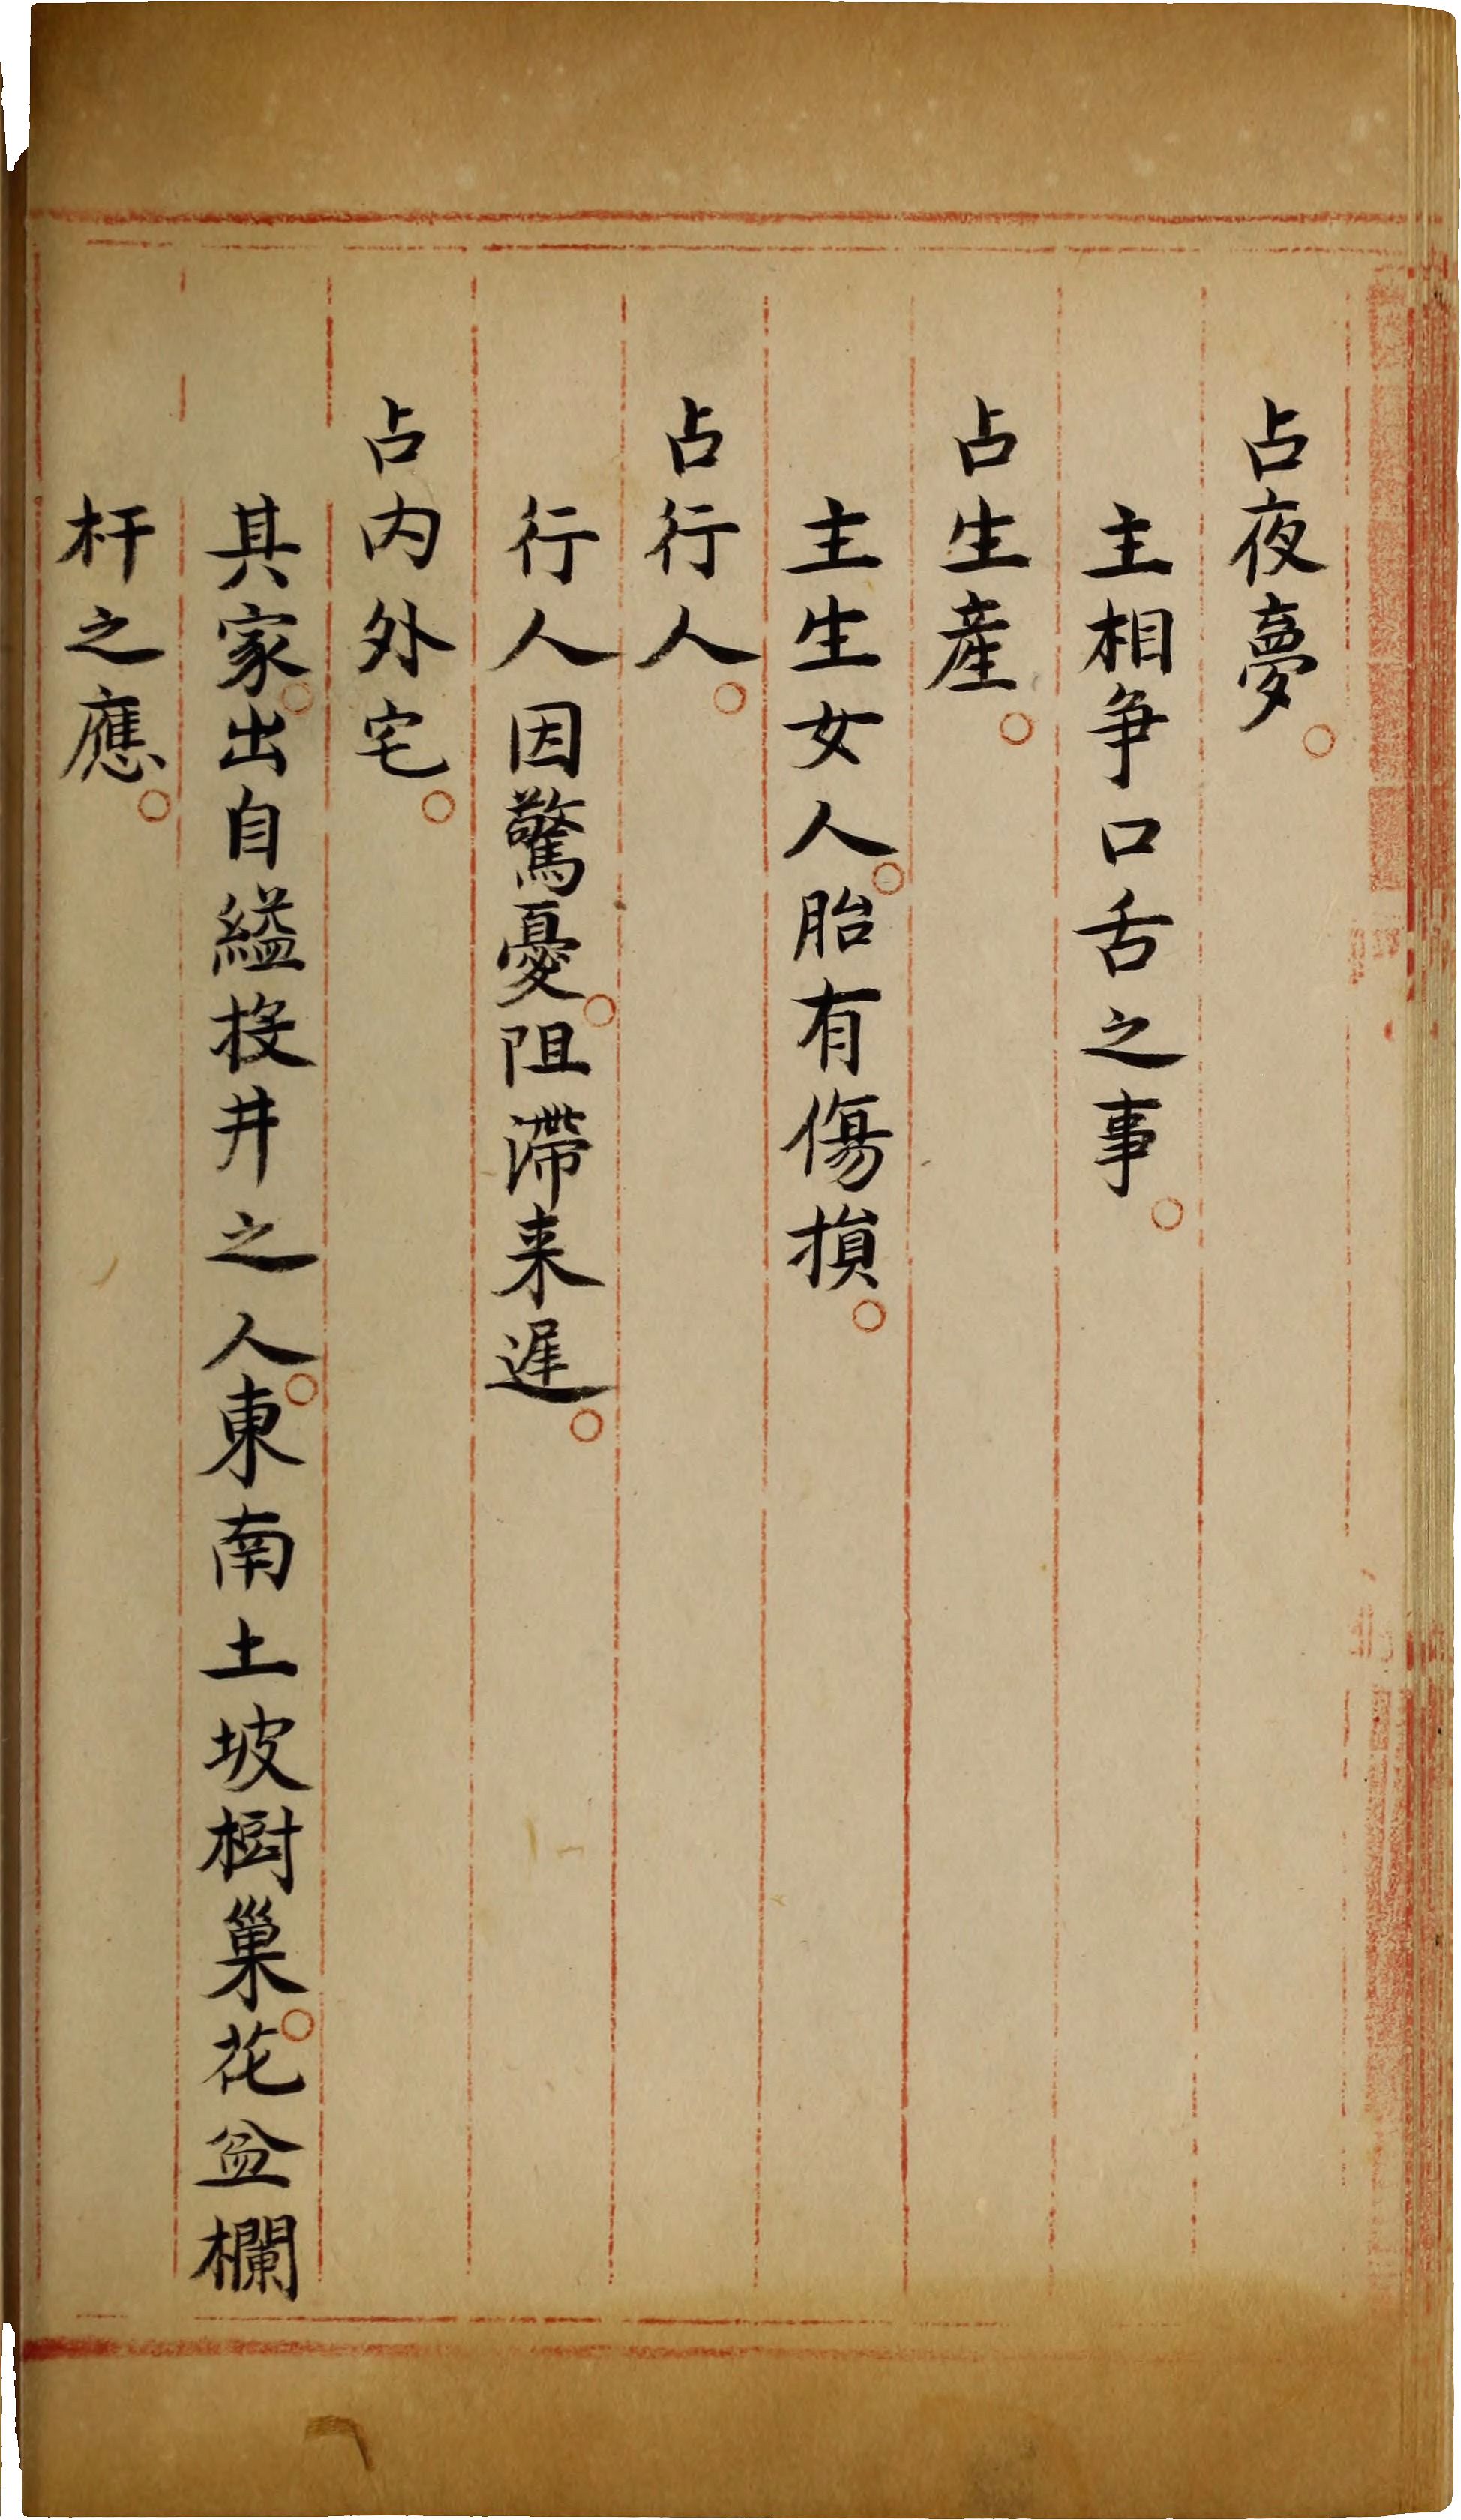 占夜夢。
主相争口舌之事。
占生產。
主生女人。胎有傷損。
占行人。
行人因驚憂。阻滯来遲。
占内外宅。
其家。出自縊投井之人。東南土坡樹巢。花盆欄
杆之應。